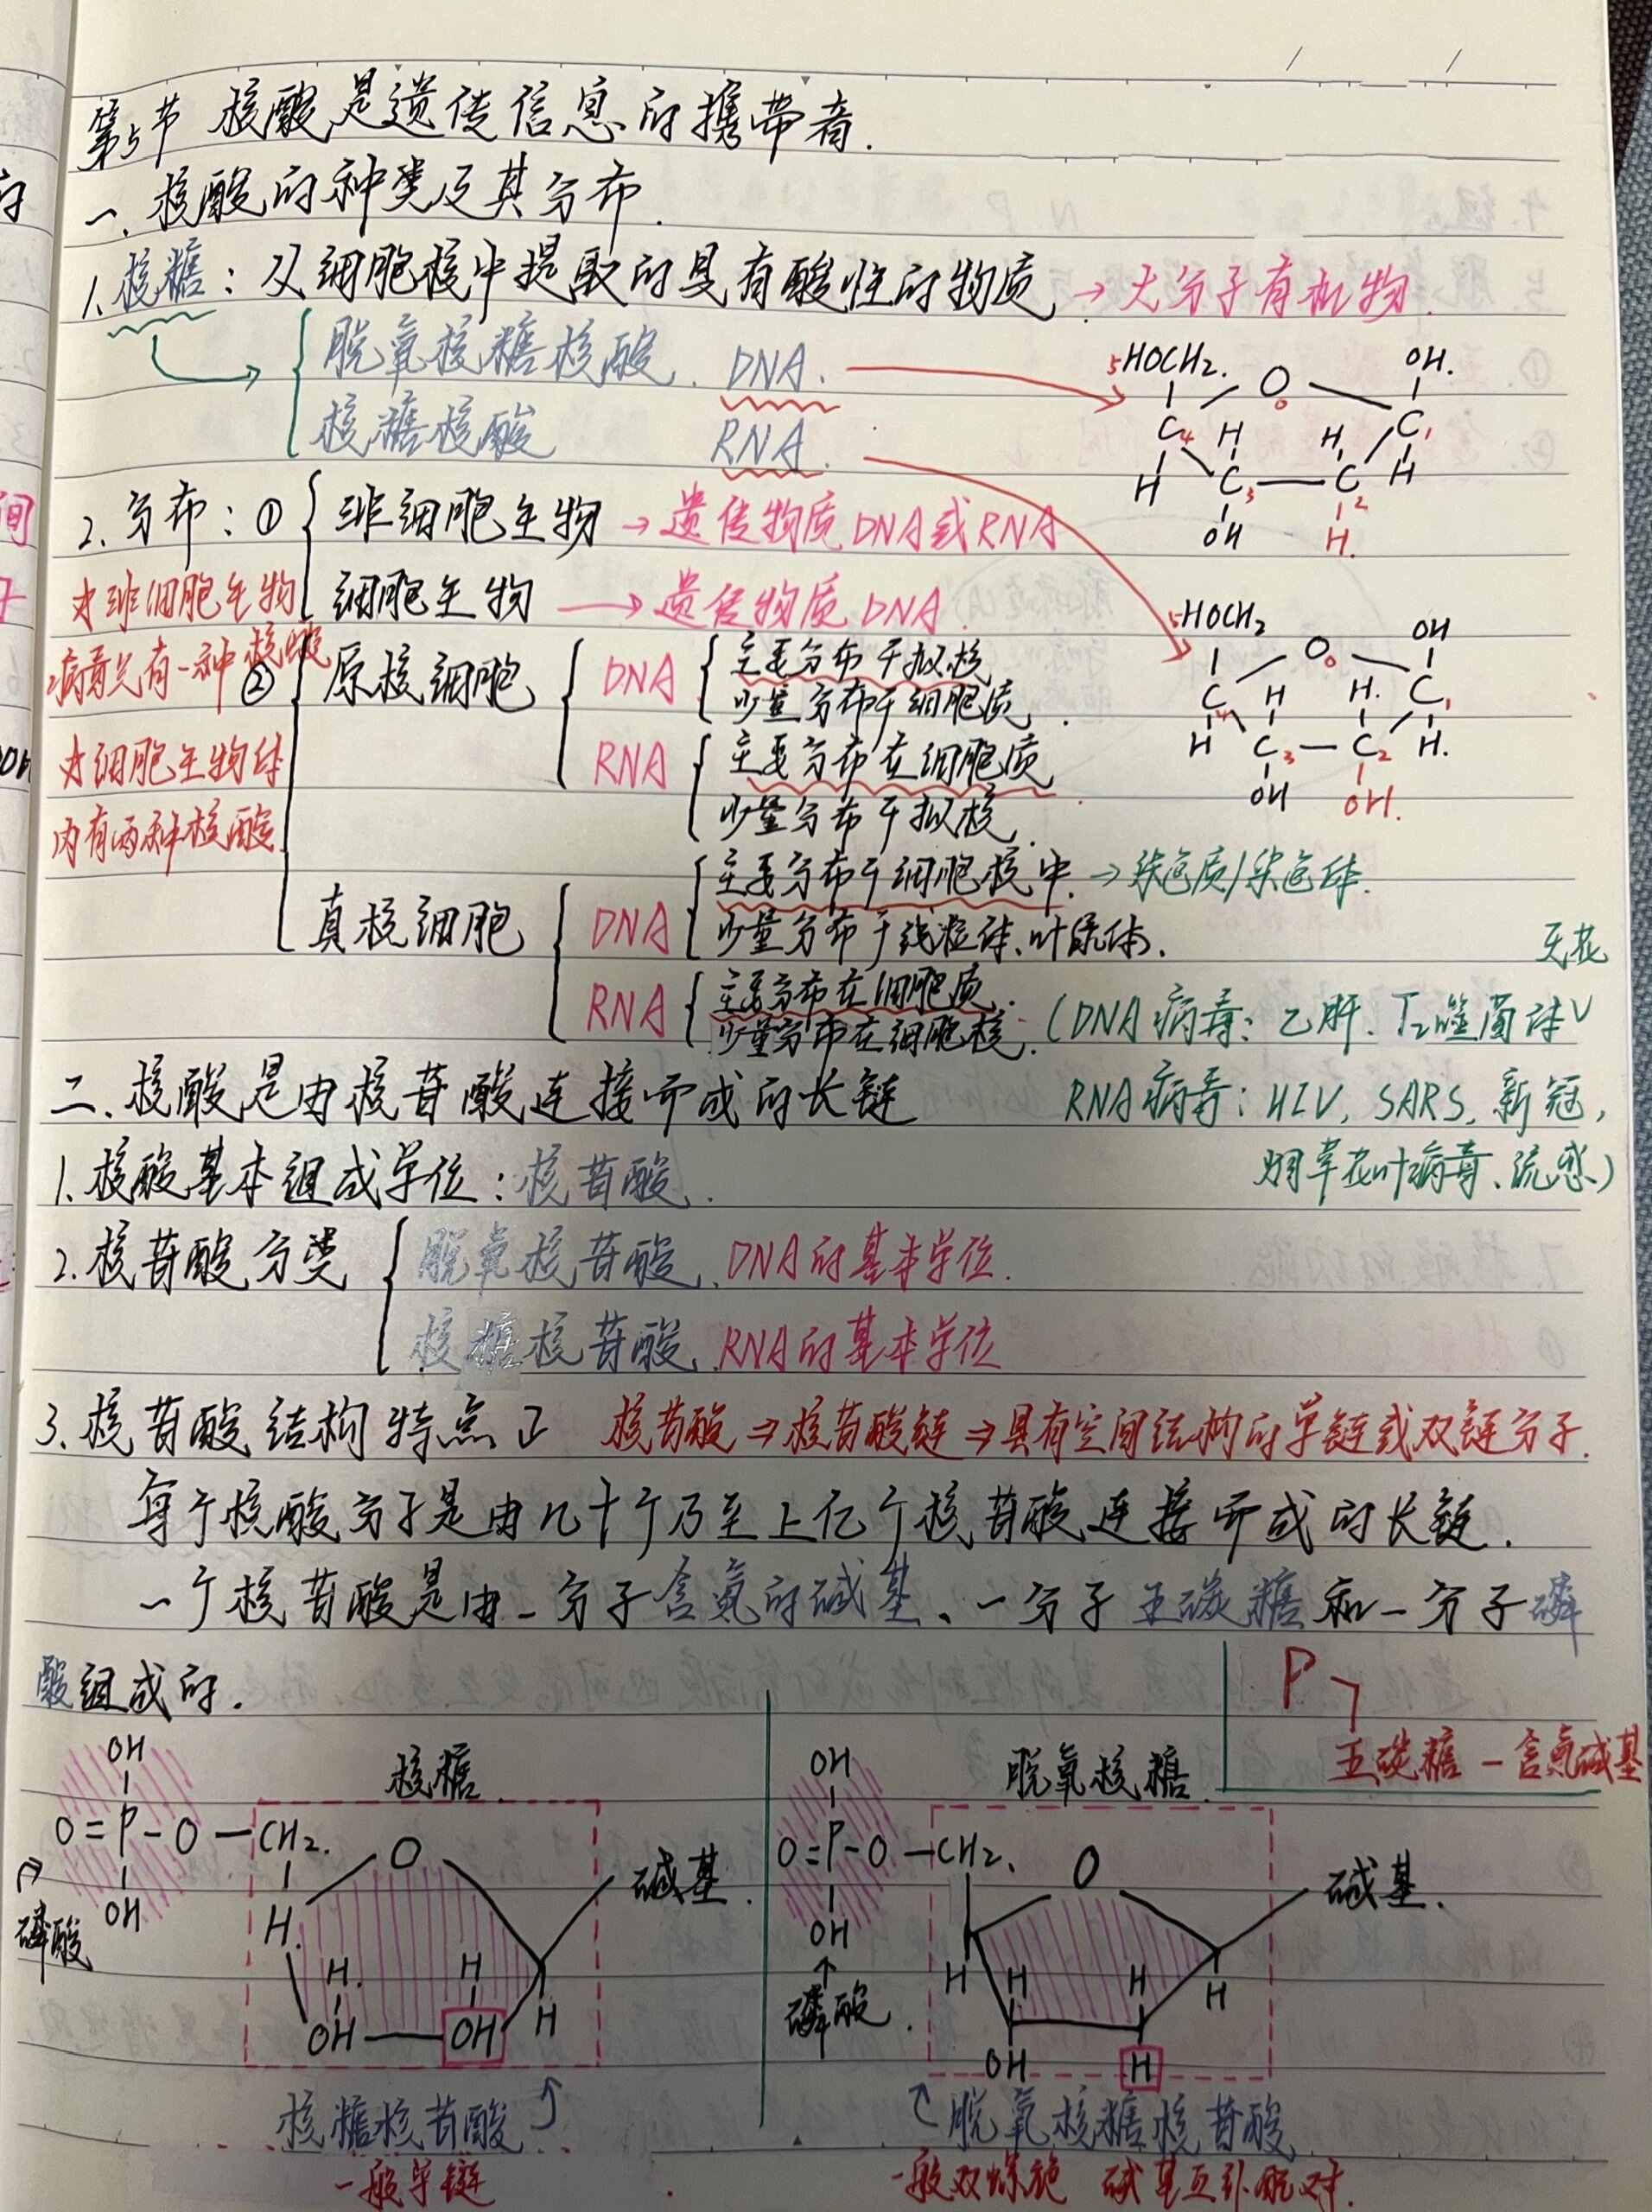 第5节 核酸是遗传信息的携带者.
一、核酸的种类及其分布.
1.核糖：从细胞核中提取的具有酸性的物质 → 大分子有机物.
脱氧核糖核酸. DNA.
核糖核酸 RNA.
5HOCH2. O OH.
C4 H H C1
H C3 C2 H
OH H.
2.分布：① 非细胞生物 → 遗传物质DNA或RNA
细胞生物 → 遗传物质DNA.
☆非细胞生物
病毒只有一种核酸
☆细胞生物体
内有两种核酸.
5HOCH2 O OH
C4 H H. C1
H C3 C2 H.
OH OH.
② 原核细胞 DNA 主要分布于拟核
少量分布于细胞质.
RNA 主要分布在细胞质
少量分布于拟核.
真核细胞 DNA 主要分布于细胞核中. → 染色质/染色体.
少量分布于线粒体、叶绿体.
RNA 主要分布在细胞质.
少量分布在细胞核.
天花
(DNA病毒：乙肝. T2噬菌体V
RNA病毒：HIV, SARS, 新冠,
烟草花叶病毒、流感)
二、核酸是由核苷酸连接而成的长链
1.核酸基本组成单位：核苷酸.
2.核苷酸分类 脱氧核苷酸. DNA的基本单位.
核糖核苷酸. RNA的基本单位
3.核苷酸结构特点 核苷酸⇒核苷酸链⇒具有空间结构的单链或双链分子.
每个核酸分子是由几十个乃至上亿个核苷酸连接而成的长链.
一个核苷酸是由一分子含氮的碱基、一分子五碳糖和一分子磷
酸组成的.
P
五碳糖 - 含氮碱基
核糖
OH
O=P-O-CH2. O
OH
磷酸
碱基.
H.
H. H
OH OH H
核糖核苷酸
一般单链
脱氧核糖
OH
O=P-O-CH2. O
OH
磷酸.
碱基.
H H H H
OH H
脱氧核糖核苷酸
一般双螺旋 碱基互补配对.